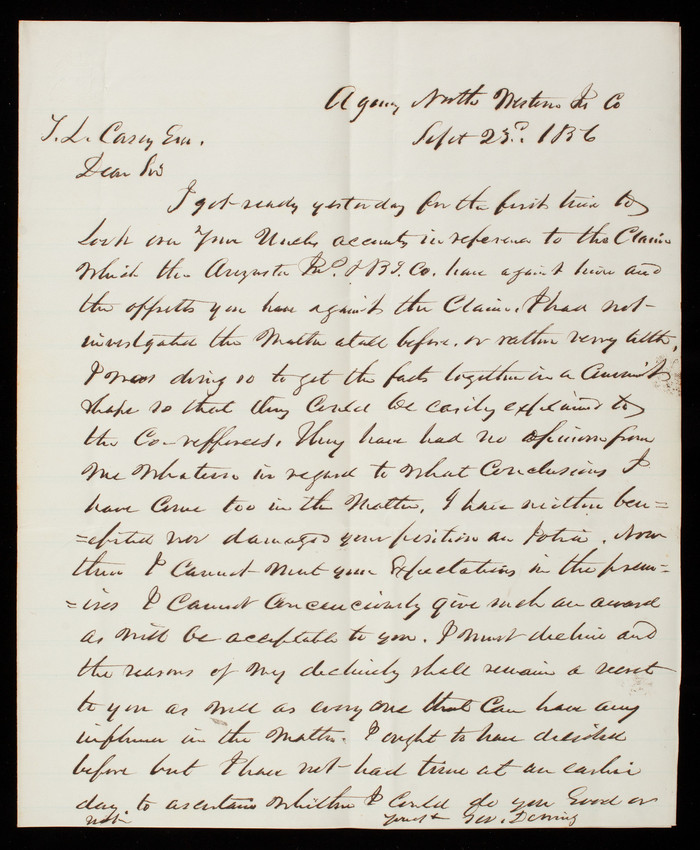 Agency North Western Is Co
Sept 23d. 1856
T. L. Casey Esq.
Dear Sir
I got ready yesterday for the first time to
look over your Uncles accounts in reference to the Claim
which the Augusta Ins. & B'g. Co. have against him and
the offsetts you have against the Claim. I had not
investigated the Matter atall before, or rather verry little,
I was doing so to get the facts together in a
shape so that they Could be easily explained to
the Co-refferees. They have had no opinion from
me whatever in regard to what Conclusions I
have Come too in the Matter, I have neither ben=
=efited nor damaged your position an Iota. Now
then I Cannot meet your Expectations in the prem=
=ises I Cannot Conscienciously give such an award
as will be acceptable to you. I must decline and
the reasons of my declining shall remain a secret
to you as well as every one that Can have any
influence in the Matter. I ought to have decided
before but I have not had time at an earlier
day to ascertain whither I Could do you Good or
not. yours Geo. Deming